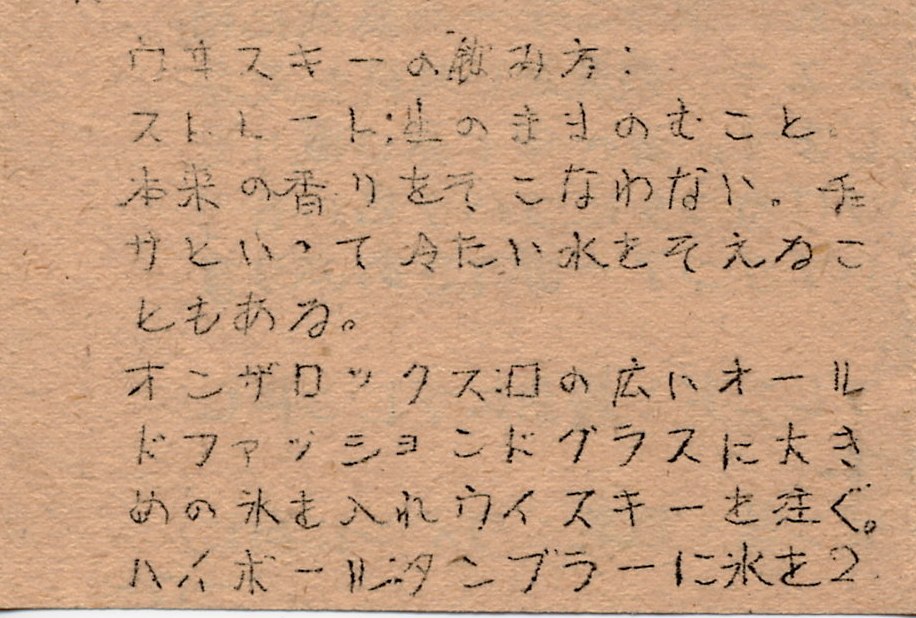 ウヰスキーの飲み方:
ストレート:生のままのむこと。
本来の香りをそこなわない。チェ
サといって冷たい水をそえるこ
ともある。
オンザロックス:口の広いオール
ドファッションドグラスに大き
めの氷を入れウイスキーを注ぐ。
ハイボール:タンブラーに氷を2